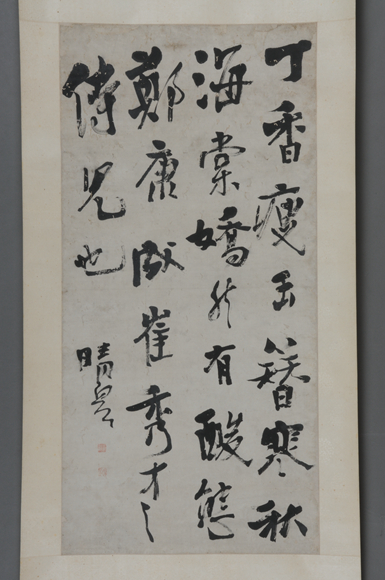 丁香瘦玉簪寒秋
海棠嬌然有酸態
鄭康成崔秀才之
侍兒也
晴